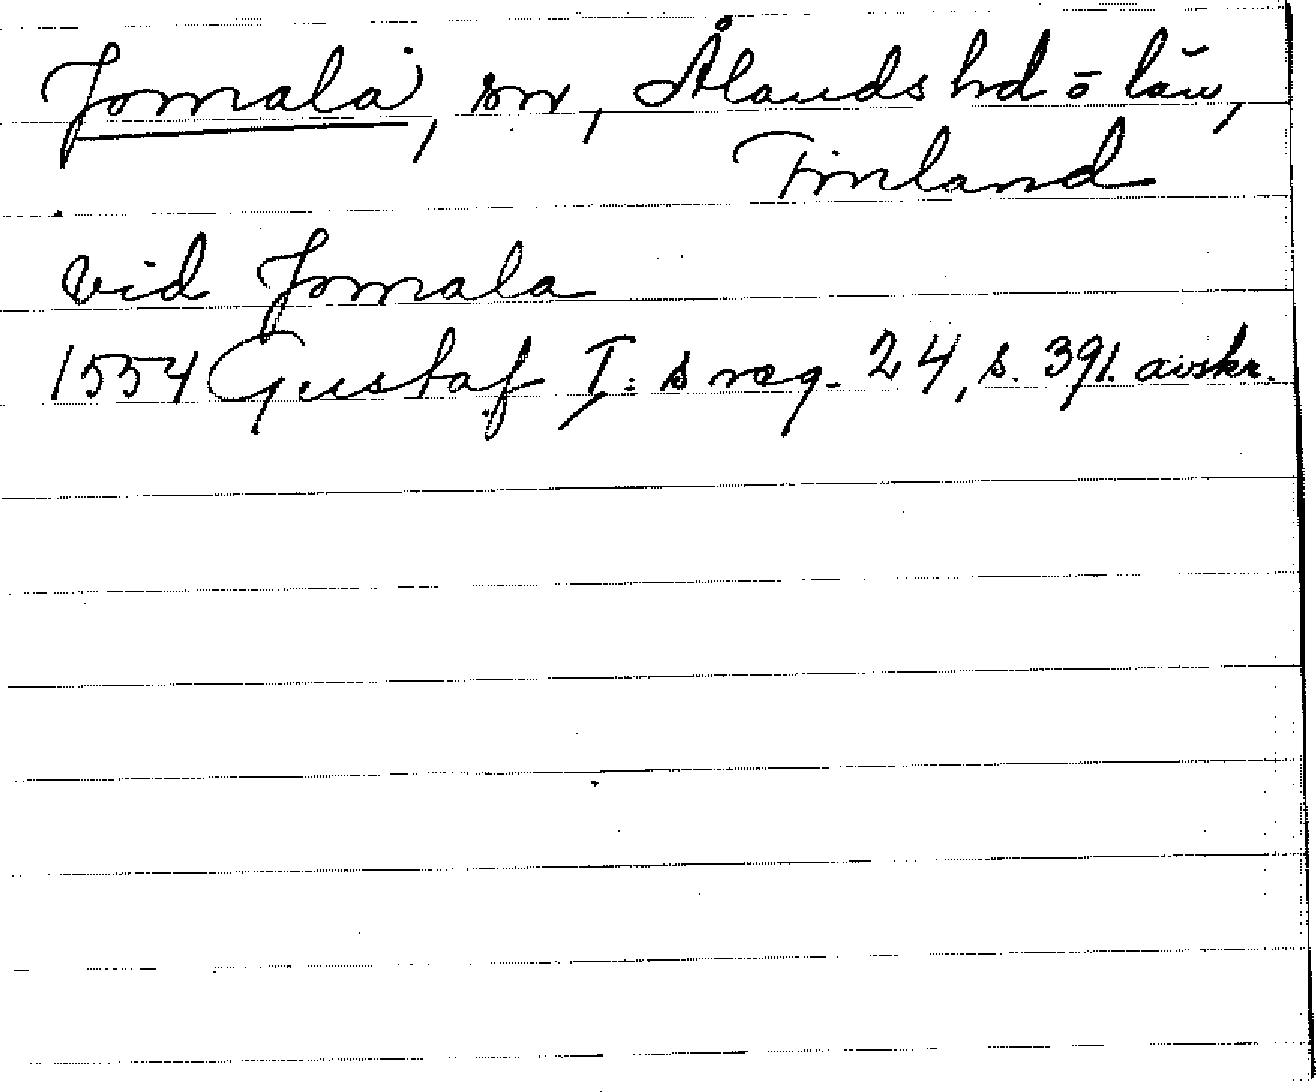 Jomala, sn, Ålands hd o län,
Finland
vid Jomala
1554 Gustaf I:s reg. 24, s. 391. avskr.